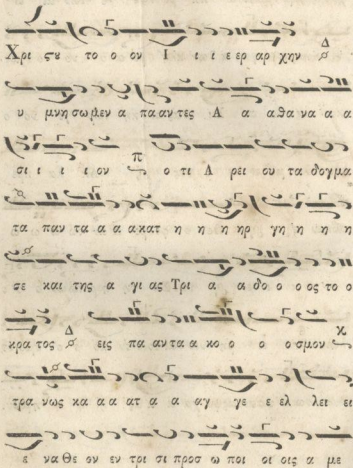 Χρι ϛου το ο ον Ι ι ι ε ερ αρ χην Δ
υ μνη σω μεν α πα αν τες Α α α θα να α α
σι ι ι ι ον π ο τι Α ρει ου τα δογμα
τα παν τα α α α κατ η η η ηρ γη η η η
σε και της α γι ας Τρι α α δο ο ο ος το ο
κρα τος Δ εις πα αν τα α κο ο ο ο σμον κ
τρα νως κα α α ατ α α αγ γε ε ελ λει ει
ε να Θε ον εν τρι σι προσ ω ποι οι οις α με